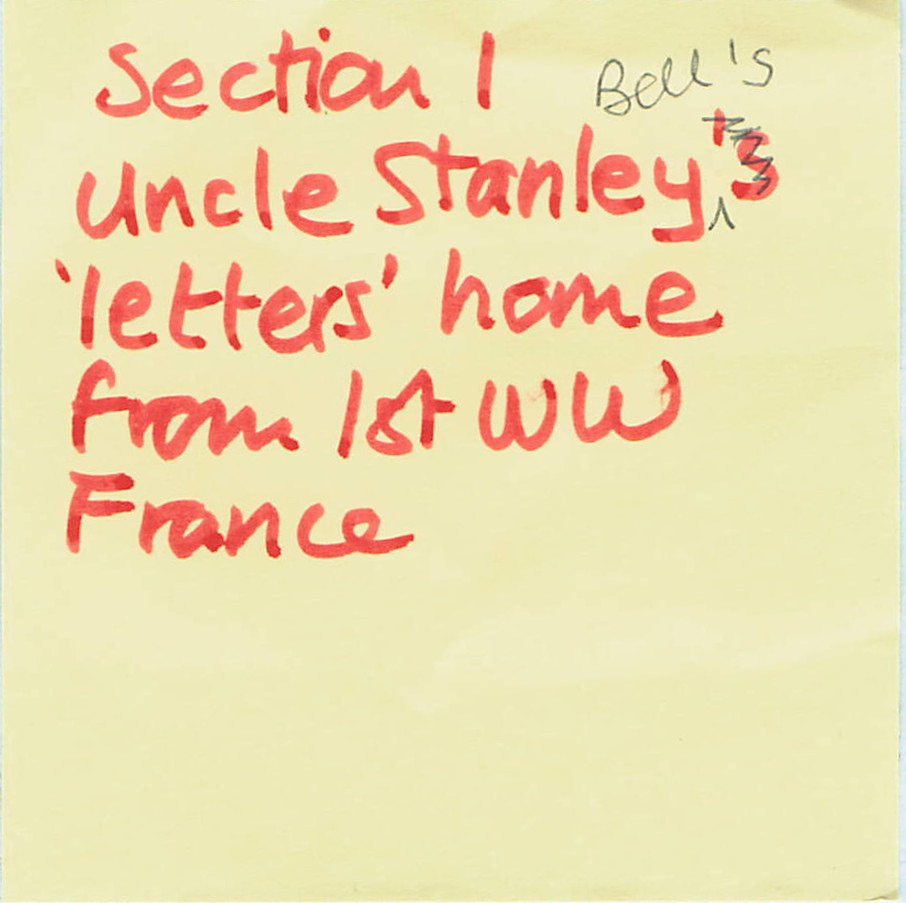 Section 1
Uncle Stanley Bell's
'letters' home
from 1st WW
France